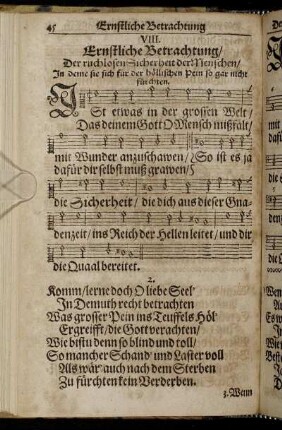 45 Ernstliche Betrachtung
VIII.
Ernstliche Betrachtung/
Der ruchlosen Sicherheit der Menschen/
In deme sie sich für der höllischen Pein so gar nicht
fürchten.
Ist etwas in der grossen Welt/
Das deinem Gott O Mensch mißfält/
mit Wunder anzuschawen/ So ist es ja
dafür dir selbst muß grawen/
die Sicherheit/ die dich aus dieser Gna-
denzeit/ ins Reich der Hellen leitet/ und dir
die Quaal bereitet.
2.
Komm/ lerne doch O liebe Seel'
In Demuth recht betrachten
Was grosser Pein ins Teuffels Höl'
Ergreifft/ die Gott verachten/
Wie bistu denn so blind und toll/
So mancher Schand' und Laster voll
Als wär' auch nach dem Sterben
Zu fürchten kein Verderben.
3. Wenn